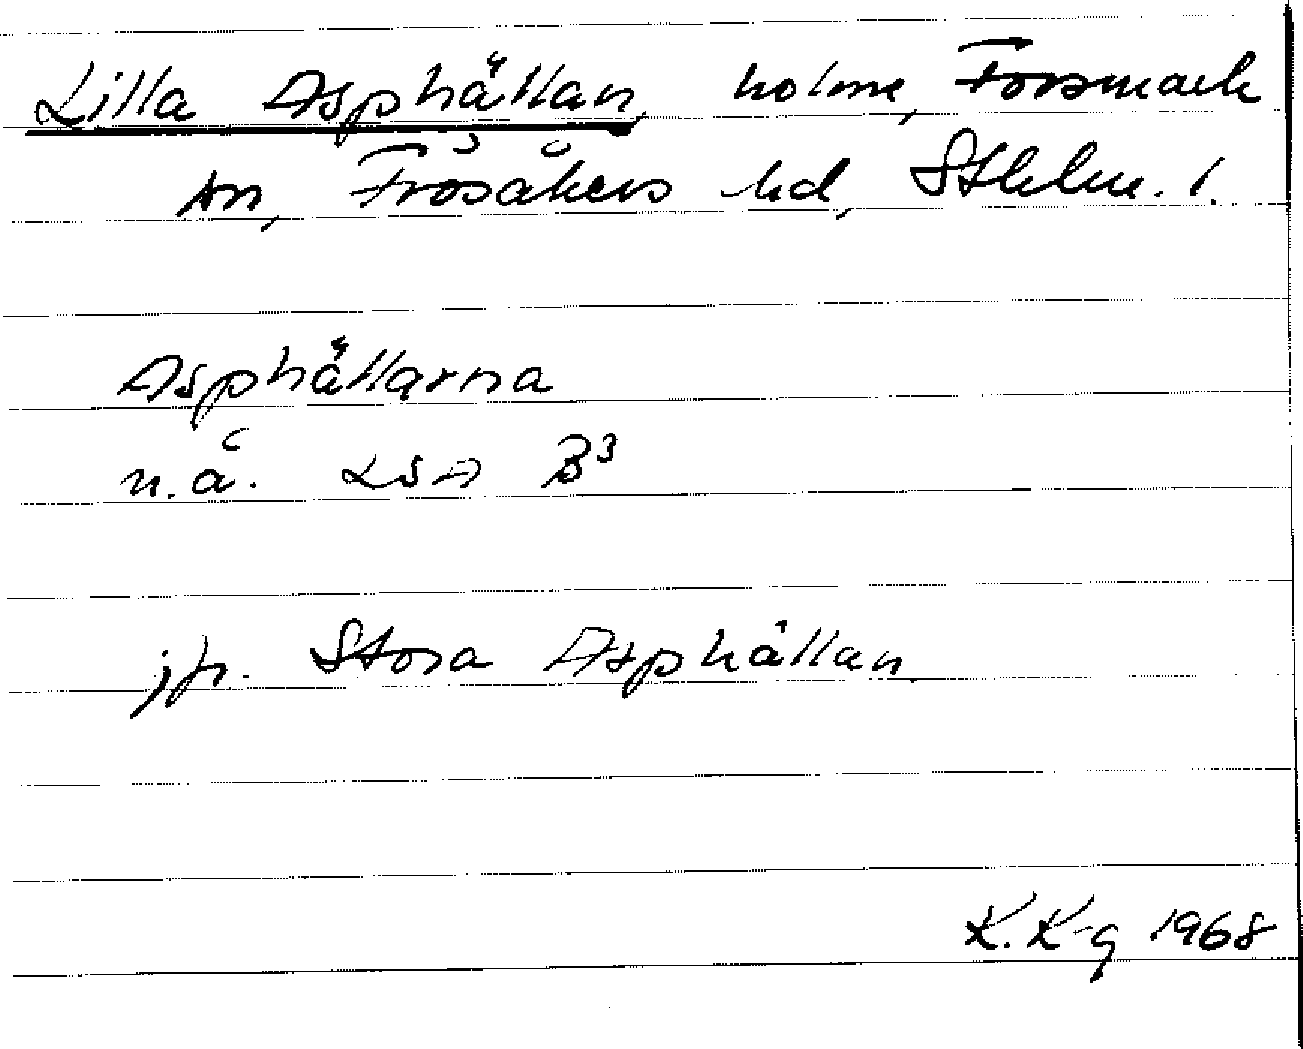 Lilla Asphällan, holme, Forsmark
sn, Frösåkers hd, Sthlm. l.
Asphällarna
n.å. LSA B³
jfr. Stora Asphällan
K. K-g 1968